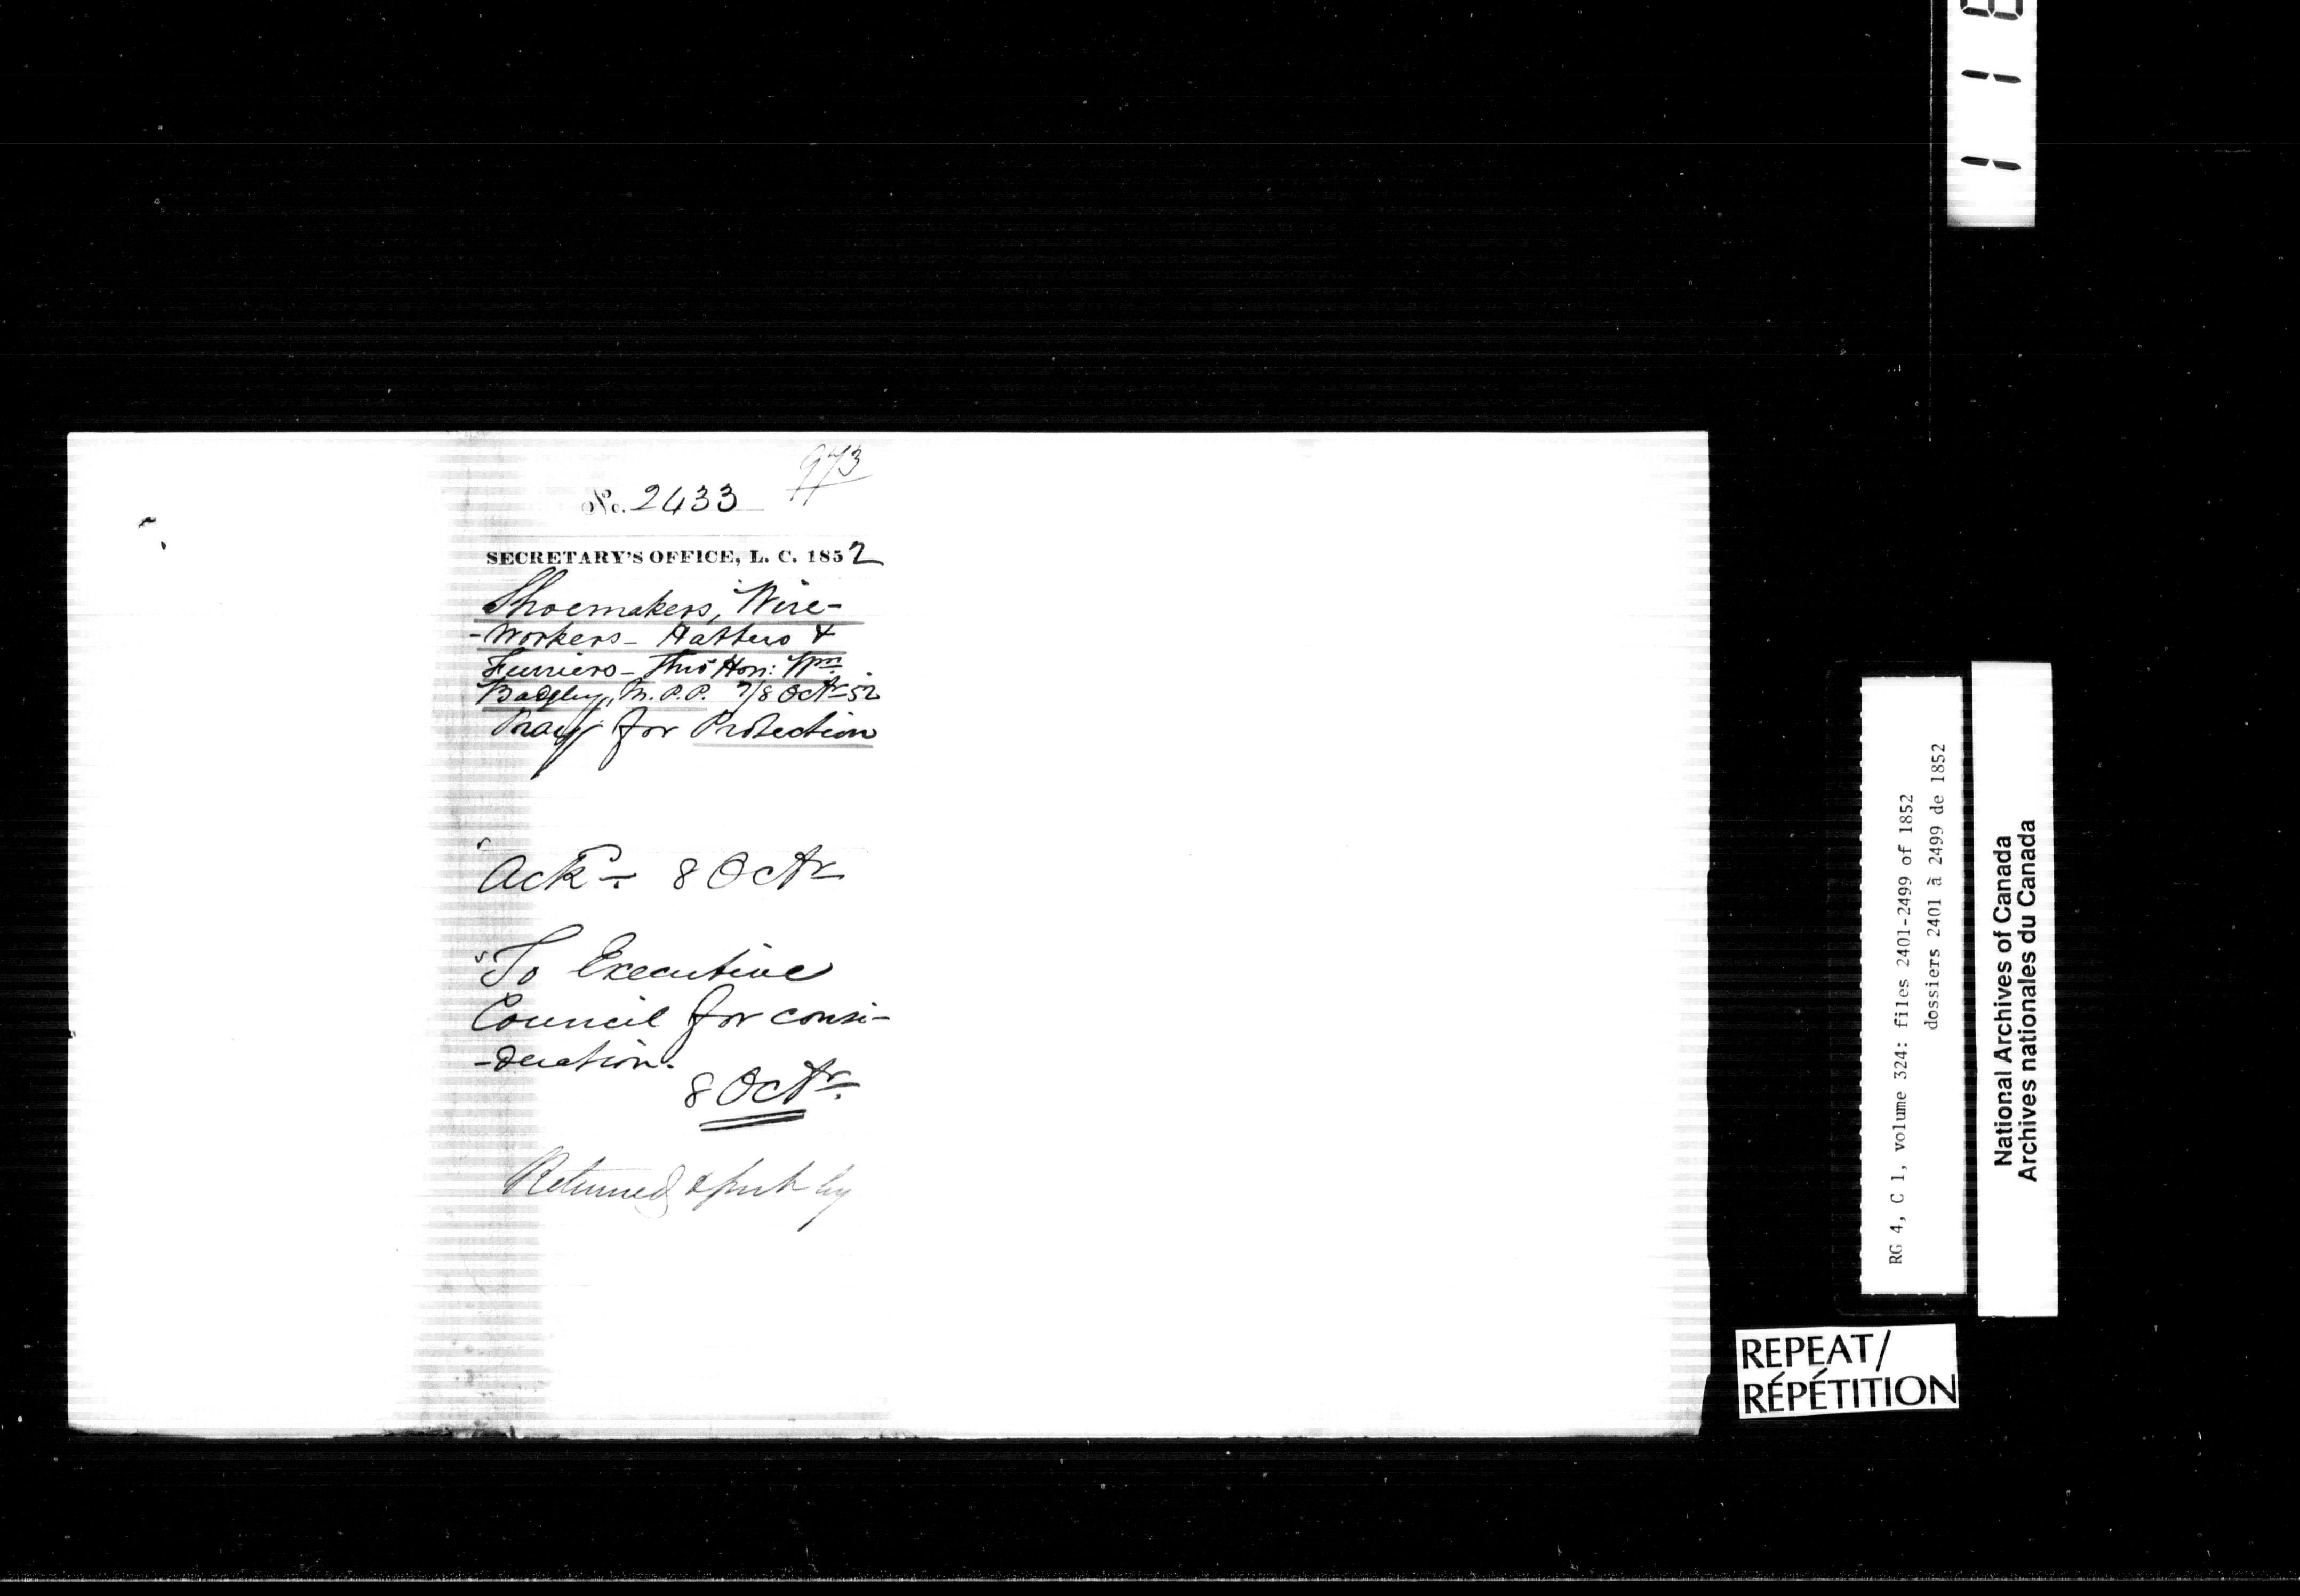 973
No. 2433
SECRETARY'S OFFICE, L. C. 1852
Shoemakers, Wire-
-Workers - Hatters &
Furriers - Thro' Hon: Wm.
Badgley, M.P.P. 7/8 Octr 52
Pray for Protection
Ackd. 8 Octr
To Executive
Council for consi-
-deration.
8 Octr.
Returned & put by
RG 4, C 1, volume 324: files 2401-2499 of 1852
dossiers 2401 à 2499 de 1852
National Archives of Canada
Archives nationales du Canada
REPEAT/
RÉPÉTITION